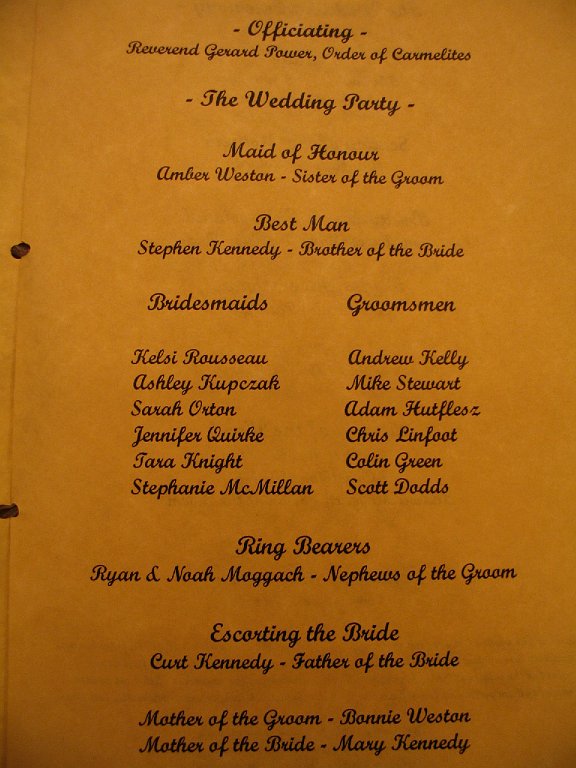 - Officiating -
Reverend Gerard Power, Order of Carmelites
- The Wedding Party -
Maid of Honour
Amber Weston - Sister of the Groom
Best Man
Stephen Kennedy - Brother of the Bride
Bridesmaids Groomsmen
Kelsi Rousseau Andrew Kelly
Ashley Kupczak Mike Stewart
Sarah Orton Adam Hutflesz
Jennifer Quirke Chris Linfoot
Tara Knight Colin Green
Stephanie McMillan Scott Dodds
Ring Bearers
Ryan & Noah Moggach - Nephews of the Groom
Escorting the Bride
Curt Kennedy - Father of the Bride
Mother of the Groom - Bonnie Weston
Mother of the Bride - Mary Kennedy